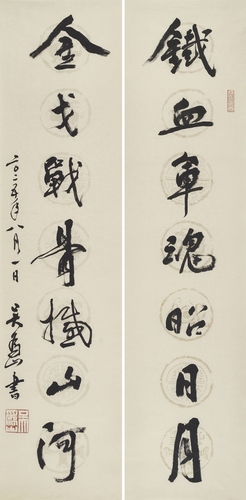 鐵血軍魂昭日月
金戈戰骨撼山河
二〇二五年八月一日
書